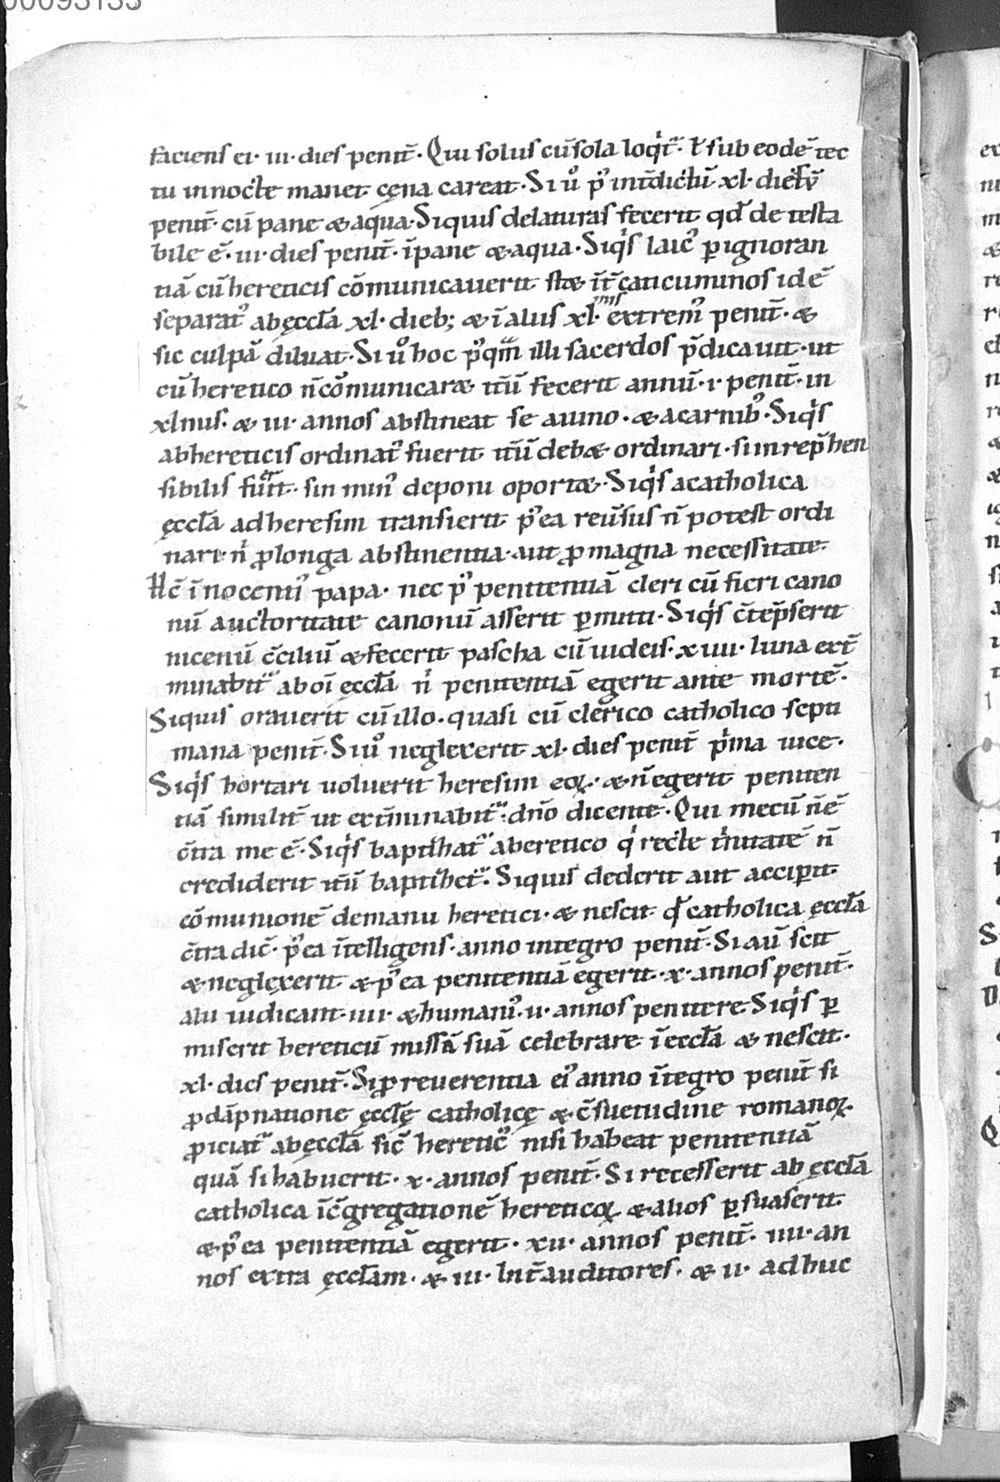 00095133
faciens ei· iii· dies penit̄· Qui solus cū sola loq̇t᷒· ł sub eodē tec
tu in nocte manet cęna careat· Si ů p᷒ int̄dictū xl· dies
penit̄· cū pane & aqua· Siquis delaturas fecerit qd̄ de testa
bile ē· iii· dies penit̄· ī pane & aqua· Siq̇s laic᷒ p̱ ignoran
tiā cū hereticis cōmunicaverit stæ īt̄ caticuminos id ē
separat᷒ ab ęccła xl· dieb; & ī aliis xl· extrem᷒ penit̄· &
sic culpā diluat· Si ů hoc p᷒qm̄ illi sacerdos p̄dicauit· ut
cū heretico n̄ cōmunicaræ itū fecerit annū· i· penit̄· in
xlmis· & iii· annos abstineat se a uino· & a carnib᷒· Siq̇s
ab hereticis ordinat᷒ fuerit itū debæ ordinari· si inrep̄hen
sibilis fūit· sin min᷒ deponi oportæ· Siq̇s a catholica
ęccła ad heresim transierit p᷒ea reūsus n̄ potest ordi
nari· n̄ ꝓ longa abstinentia· aut ꝓ magna necessitate·
Hc̄ īnocenti᷒ papa· nec p᷒ penitentiā cleri cū fieri cano
nū auctoritate canonū asserit p̱mitti· Siq̇s c̄tēpserit
nicenū c̄ciliū & fecerit pascha cū iudeis· xiiii· luna ext̄
minabit᷒ ab oī ęccła n̄ penitentiā egerit ante mortē·
Siquis oraverit cū illo· quasi cū clerico catholico septi
mana penit̄· Si ů neglexerit xl· dies penit̄ p̍ma uice·
Siq̇s hortari uoluerit heresim eoꝝ· & n̄ egerit peniten
tiā similit̄ ut ext̄minabit᷒· dn̄o dicente· Qui mecū n̄ ē
c̄tra me ē· Siq̇s baptihat᷒ ab eretico q̇ recte t̍nitatē n̄
crediderit itū baptihet᷒· Siquis dederit aut accip̱it
cōmunionē de manu heretici· & nescit qđ catholica ęccła
c̄tra dic̄· p᷒ea ītelligens· anno integro penit̄· Si aū scit
& neglexerit & p᷒ea penitentiā egerit· x· annos penit̄·
alii iudicant· iiii· & humani᷒· ii· annos penitere Siq̇s p̱
miserit hereticū missā suā celebrare ī ęccła & nescit·
xl· dies penit̄· Si ꝓ reverentia ei᷒ anno ītegro penit̄ si
ꝓ dāpnatione ęccłę catholicę & c̄suetudine romanoꝝ·
ꝓiciat᷒ ab ęccła sic̄ heretic᷒ nisi habeat penitentiā
quā si habuerit· x· annos penit̄· Si recesserit ab ęccła
catholica ī c̄gregationē hereticoꝝ & alios p̱suaserit
& p᷒ea penitentiā egerit· xii· annos penit̄· iiii· an
nos extra ęccłam· & iii· Int̄ auditores· & ii· adhuc